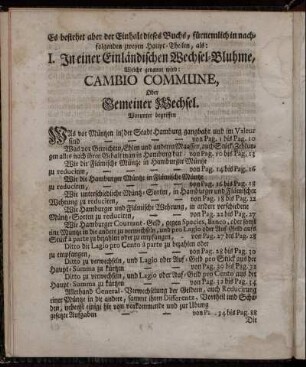 Es bestehet aber der Einhalt dieses Buchs, fürnemlich in nach-
folgenden zweyen Haupt-Theilen, als:
I. In einer Einländischen Wechsel-Bluhme,
Welche genannt wird:
CAMBIO COMMUNE,
Oder
Gemeiner Wechsel.
Worunter begriffen
Was vor Müntzen in der Stadt Hamburg gangbahr und im Valeur
sind — von Pag. 1 biß Pag. 10
Was vor Gewichte, Ehlen und andern Maasse, auch Stück-
gen alles nach ihrer Gehalt man in Hamburg hat von Pag. 10 biß Pag. 13
Wie die Flämische Müntze in Hamburger Müntze
zu reduciren, von Pag. 14 biß Pag. 16
Wie die Hamburger Müntze in Flämische Müntze
zu reduciren, von Pag. 16 biß Pag. 18
Wie unterschiedliche Müntz-Sorten, in Hamburger und Flämischer
Wehrung zu reduciren, von Pag. 18 biß Pag. 22
Wie Hamburger und Flämische Wehrung, in andere verschiedene
Müntz-Sorten zu reduciren, von Pag. 22 biß Pag. 27
Wie Hamburger Courant-Geld, gegen Species, Banco, oder sonst
eine Müntze in die andere zu verwechseln, und pro Lagio oder Auf-Geld auf
Stück a parte zu bezahlen oder zu empfangen, von Pag. 27 biß Pag. 28
Ditto die Lagio pro Cento a parte zu bezahlen oder
zu empfangen, von Pag. 28 biß Pag. 29
Ditto zu verwechseln, und Lagio oder Auf-Geld pro Stück aus der
Haupt-Summa zu kürtzen von Pag. 29 biß Pag. 30
Ditto zu verwechseln, und Lagio oder Auf-Geld pro Cento aus der
Haupt-Summa zu kürtzen von Pag. 30 biß Pag. 34
Allerhand General-Verwechselung der Geldern, auch Reducirung
einer Müntze in die andere, sammt ihren Differentz, Vortheil und Scha-
den, von Pag. 34 biß Pag. 58
Die